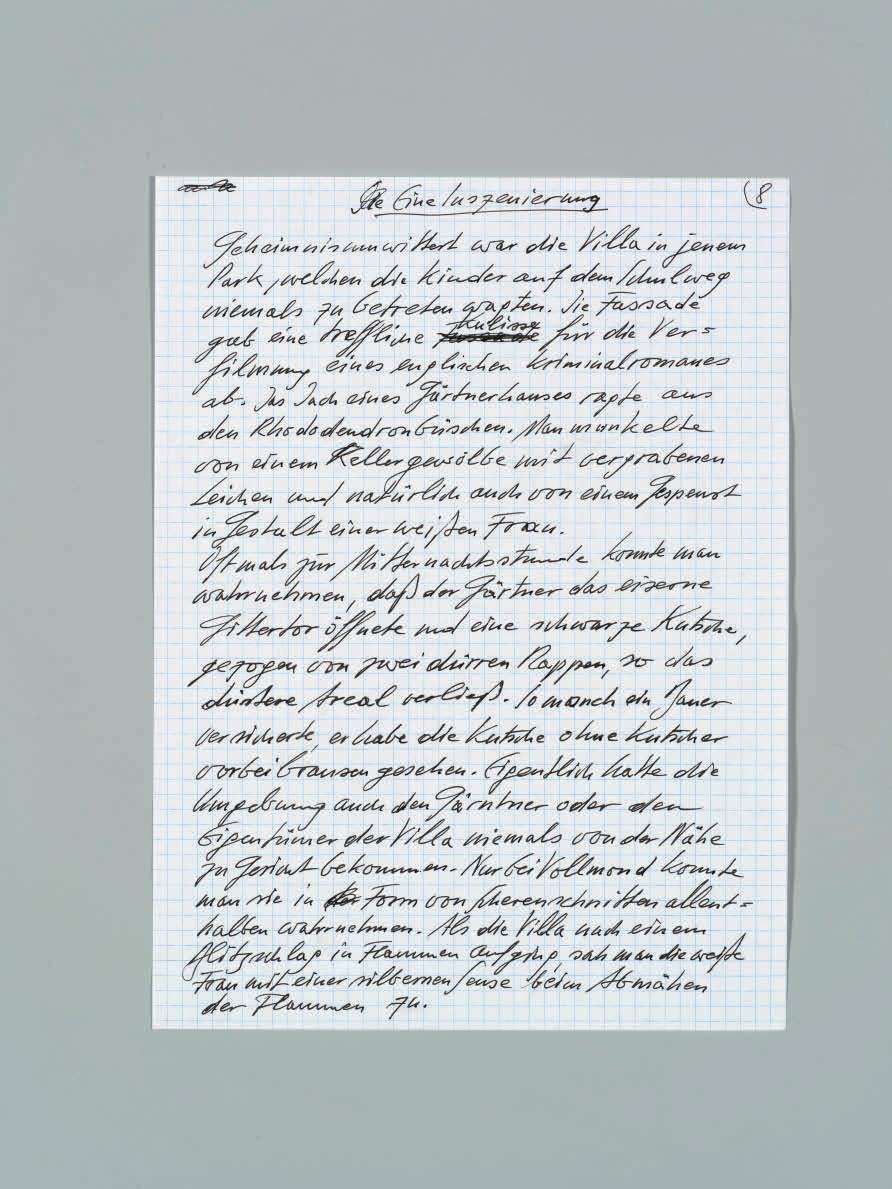 Eine Inszenierung
8
Geheimnisumwittert war die Villa in jenem
Park, welchen die Kinder auf dem Schulweg
niemals zu betreten wagten. Die Fassade
Kulisse
gab eine treffliche fassade für die Ver=
filmung eines englischen Kriminalromanes
ab. Das Dach eines Gärtnerhauses ragte aus
den Rhododendronbüschen. Man munkelte
von einem Kellergewölbe mit vergrabenen
Leichen und natürlich auch von einem Gespenst
in Gestalt einer weißen Frau.
Oftmals zur Mitternachtsstunde konnte man
wahrnehmen, daß der Gärtner das eiserne
Gittertor öffnete und eine schwarze Kutsche,
gezogen von zwei dürren Rappen, so das
düstere Areal verließ. So manch ein Bauer
versicherte, er habe die Kutsche ohne Kutscher
vorbeibrausen gesehen. Eigentlich hatte die
Umgebung auch den Gärntner oder den
Eigentümer der Villa niemals von der Nähe
zu Gesicht bekommen. Nur bei Vollmond konnte
man sie in Form von Scherenschnitten allent=
halben wahrnehmen. Als die Villa nach einem
Blitzschlag in Flammen aufging, sah man die weiße
Frau mit einer silbernen Sense beim Abmähen
der Flammen zu.